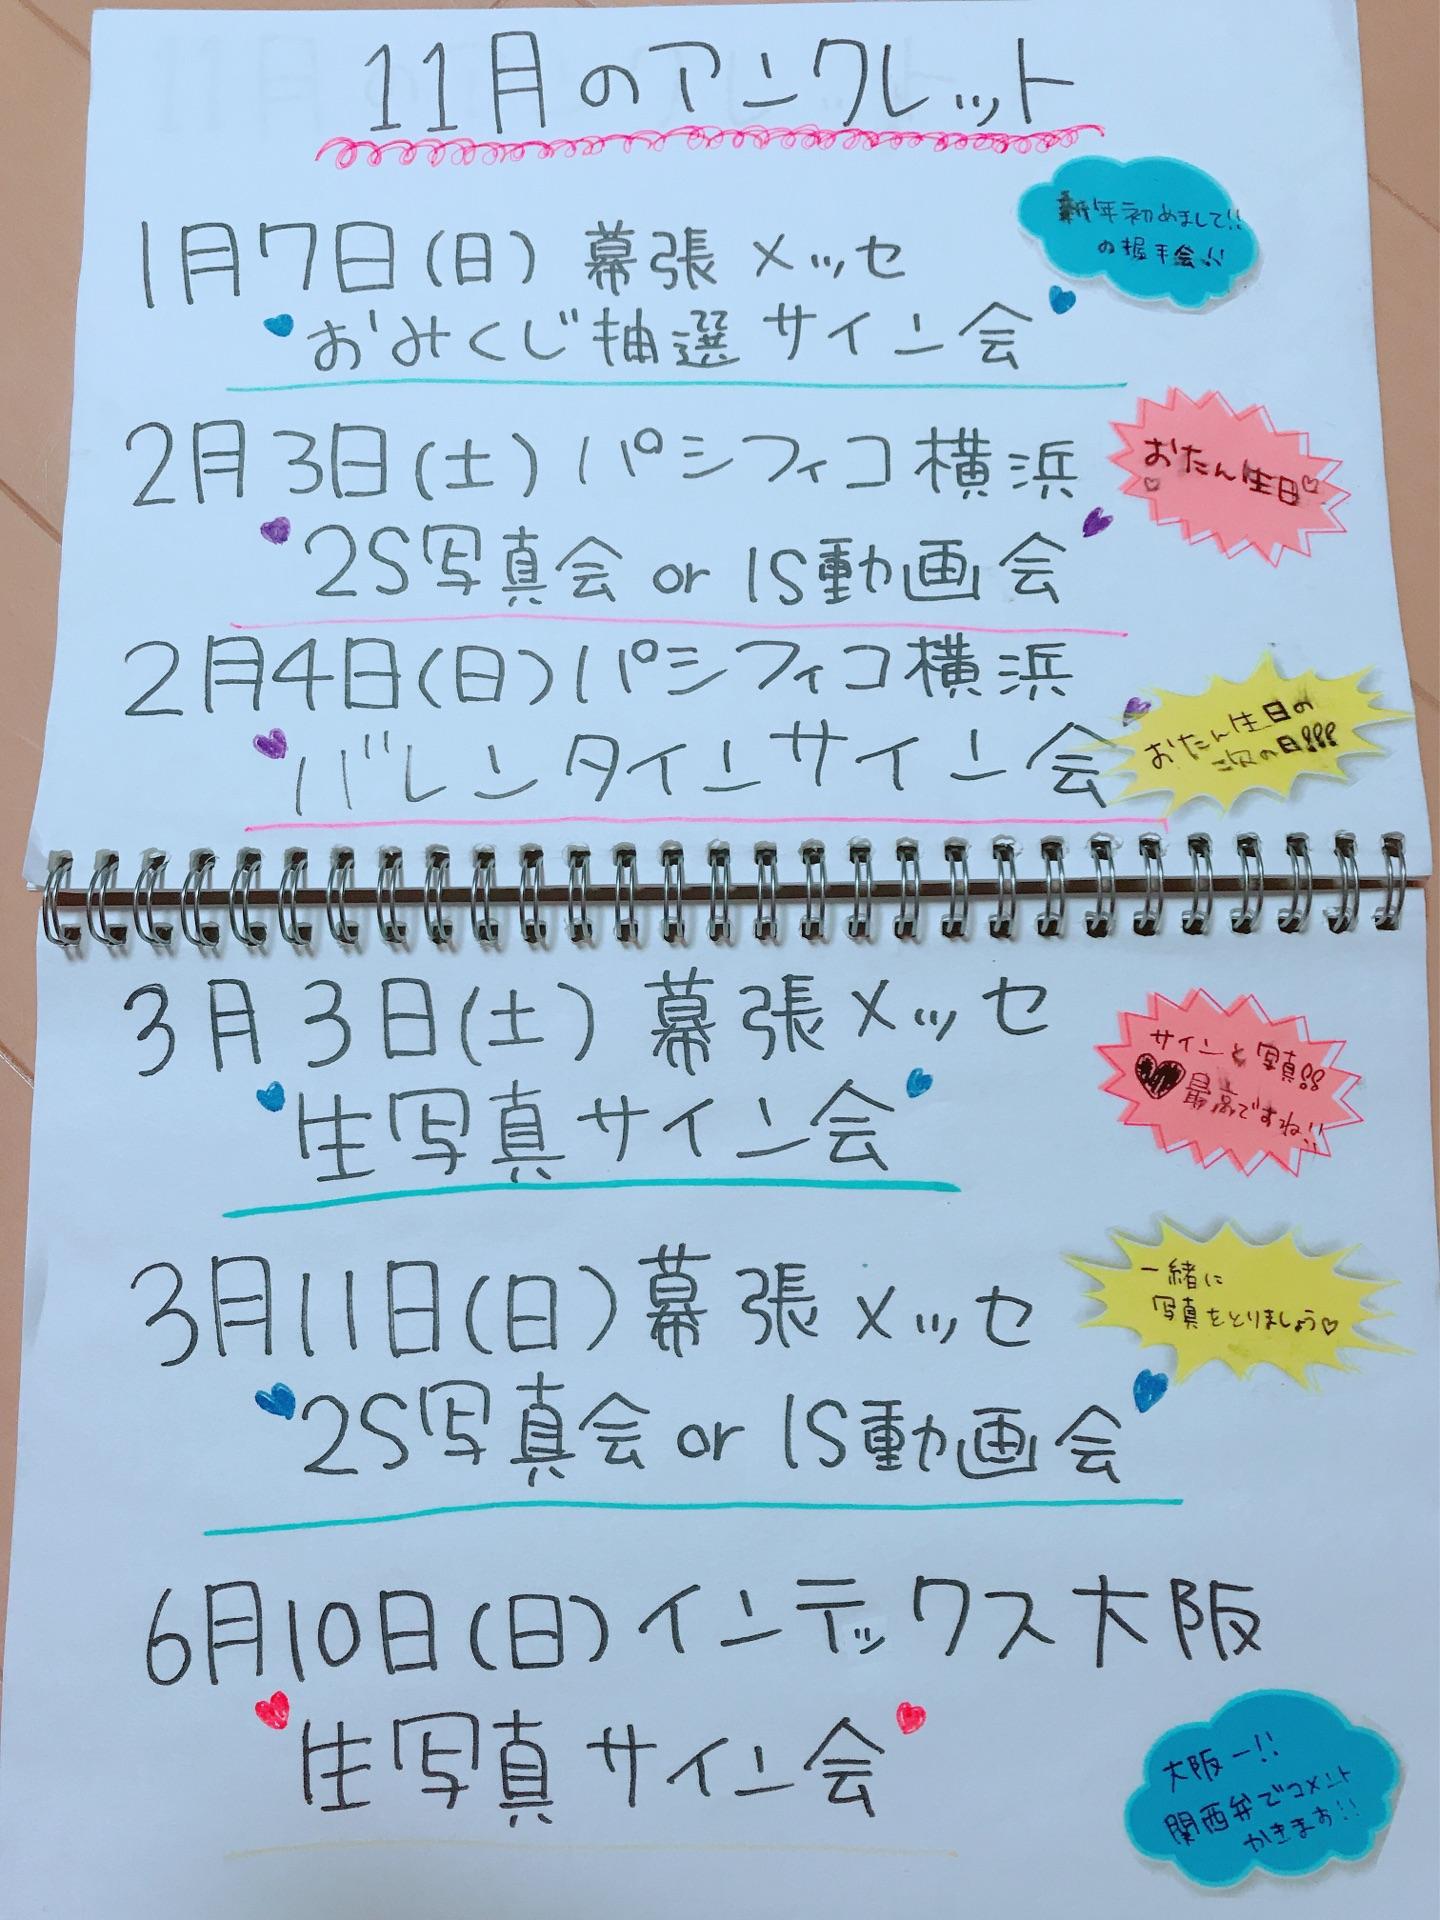 11月のアンクレット
新年初めまして!!
の握手会!!
1月7日(日) 幕張メッセ
おみくじ抽選サイン会
2月3日(土)パシフィコ横浜
おたん生日♡
♡
2S写真会 or 1S動画会
2月4日(日)パシフィコ横浜
おたん生日の
次の日!!!
バレンタインサイン会
3月3日(土)幕張メッセ
サインと写真!!
最高ですね!!
生写真サイン会
3月11日(日)幕張メッセ
一緒に
写真をとりましょう♡
2S写真会 or 1S動画会
6月10日(日)インデックス大阪
生写真サイン会
大阪ー!!
関西弁でコメント
かきます!!